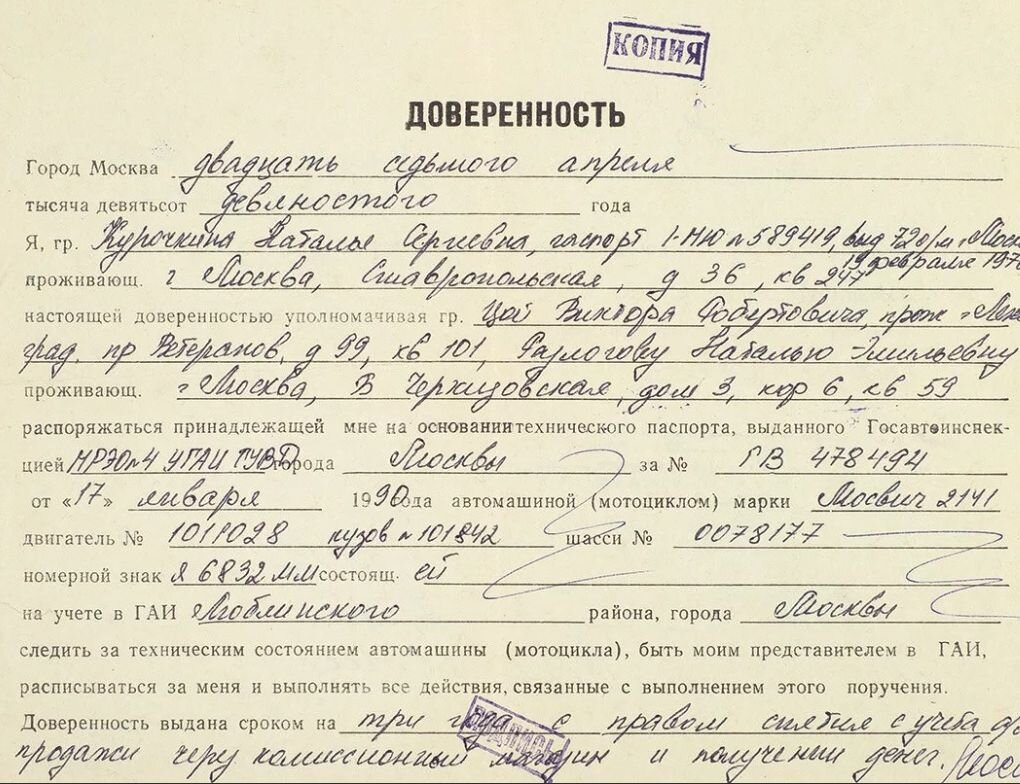 КОПИЯ
ДОВЕРЕННОСТЬ
Город Москва двадцать седьмого апреля
тысяча девятьсот девяностого года
Я, гр. Курочкина Наталья Сергиевна, паспорт 1-МЮ № 589419, выд 72 о/м г. Моск
19 февраля 197
проживающ. г Москва, Ставропольская, д 36, кв 247
настоящей доверенностью уполномачивая гр. Цой Виктора Робертовича, прож г Лен
град. пр Ветеранов, д 99, кв 101 Разлогову Наталью Эмильевну
проживающ. г Москва, Б Черкизовская, дом 3, кор 6, кв 59
распоряжаться принадлежащей мне на основании технического паспорта, выданного Госавтоинспек-
цией МРЭО №4 УГАИ ГУВД города Москвы за № ГВ 478494
от «17» января 1990 года автомашиной (мотоциклом) марки Москвич 2141
двигатель № 1011028 кузов № 101842 шасси № 0078177
номерной знак Я 6832 ММ состоящ. ей
на учете в ГАИ Люблинского района, города Москвы
следить за техническим состоянием автомашины (мотоцикла), быть моим представителем в ГАИ,
расписываться за меня и выполнять все действия, связанные с выполнением этого поручения.
Доверенность выдана сроком на три года с правом снятия с учета
продажи через комиссионный магазин и получения денег.